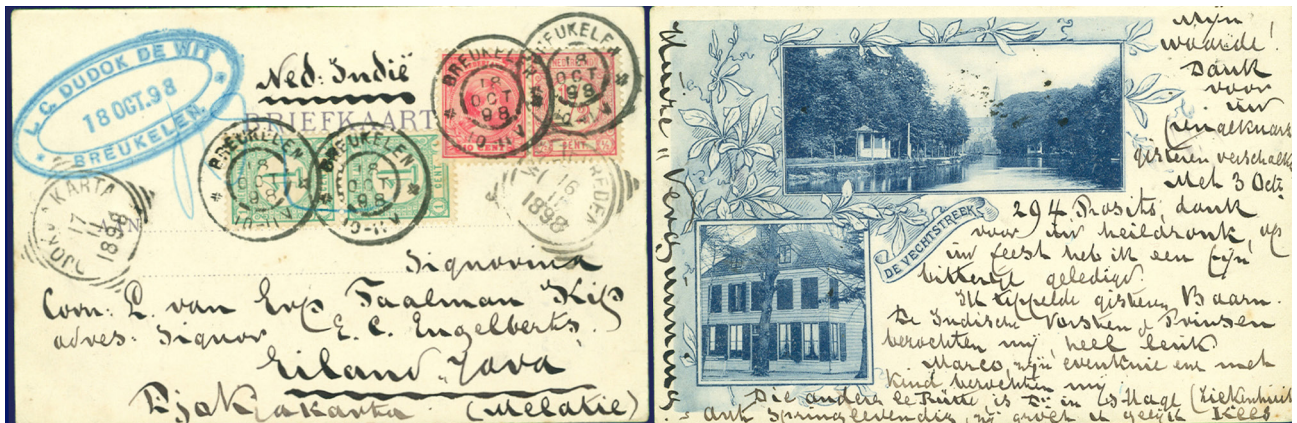 L. C. DUDOK DE WIT
18 OCT. 98
BREUKELEN.
Ned: Indië
BRIEFKAART
BREUKELEN
18
OCT
98
10-11V
BREUKELEN
18
OCT
98
10-11V
BREUKELEN
18
OCT
98
BREUKELEN
18
OCT
98
10-11V
CENT
CENT
AAN
DJOKJAKARTA
17
11
1898
16
11
1898
Signorina
Corn: L. van Erp Taalman Kip
adres: Signor E. C. Engelberts.
Eiland Java
Djokjakarta (Melatie)
DE VECHTSTREEK
Mijn
waarde!
Dank
voor
uw
gisteren
Met 3 Oct:
294 Prosits, dank
voor uw heildronk, op
uw feest heb ik een fijn
bittertje geledigd
Ik tippelde gisteren Baarn.
De Indische Vorsten & Prinsen
bezochten mij, heel leuk
Marco, zijn en met
kind bezochten mij
Die andere is in 's Hage (Ziekenhuis)
springlevendig, zij groet U gelijk Kees